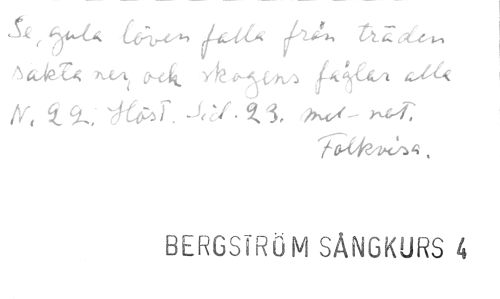 Se, gula löven falla från träden
sakta ner, och skogens fåglar alla
N. 22. Höst. Sid. 23. mel-not.
Folkvisa.
BERGSTRÖM SÅNGKURS 4